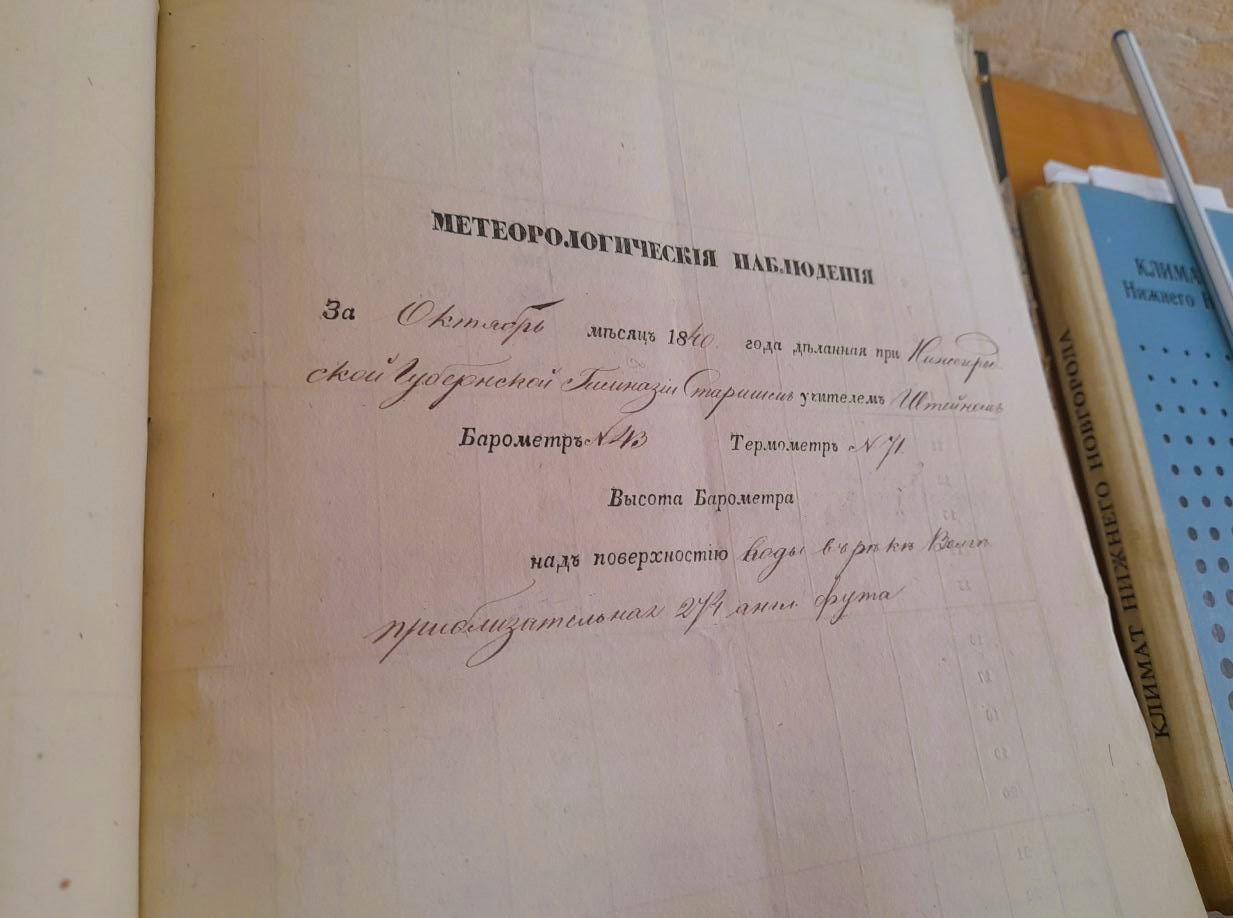 МЕТЕОРОЛОГИЧЕСКІЯ НАБЛЮДЕНІЯ
За Октябрь мѣсяцъ 1840 года дѣланная при Нижегород
ской Губернской Гимназіи Старшимъ учителемъ Штейномъ
Барометръ N 43 Термометръ N 71
Высота Барометра
надъ поверхностію воды въ рѣкѣ Волгѣ
англ. фута
КЛИМАТ НИЖНЕГО НОВГОРОДА
КЛИМА
Нижнего